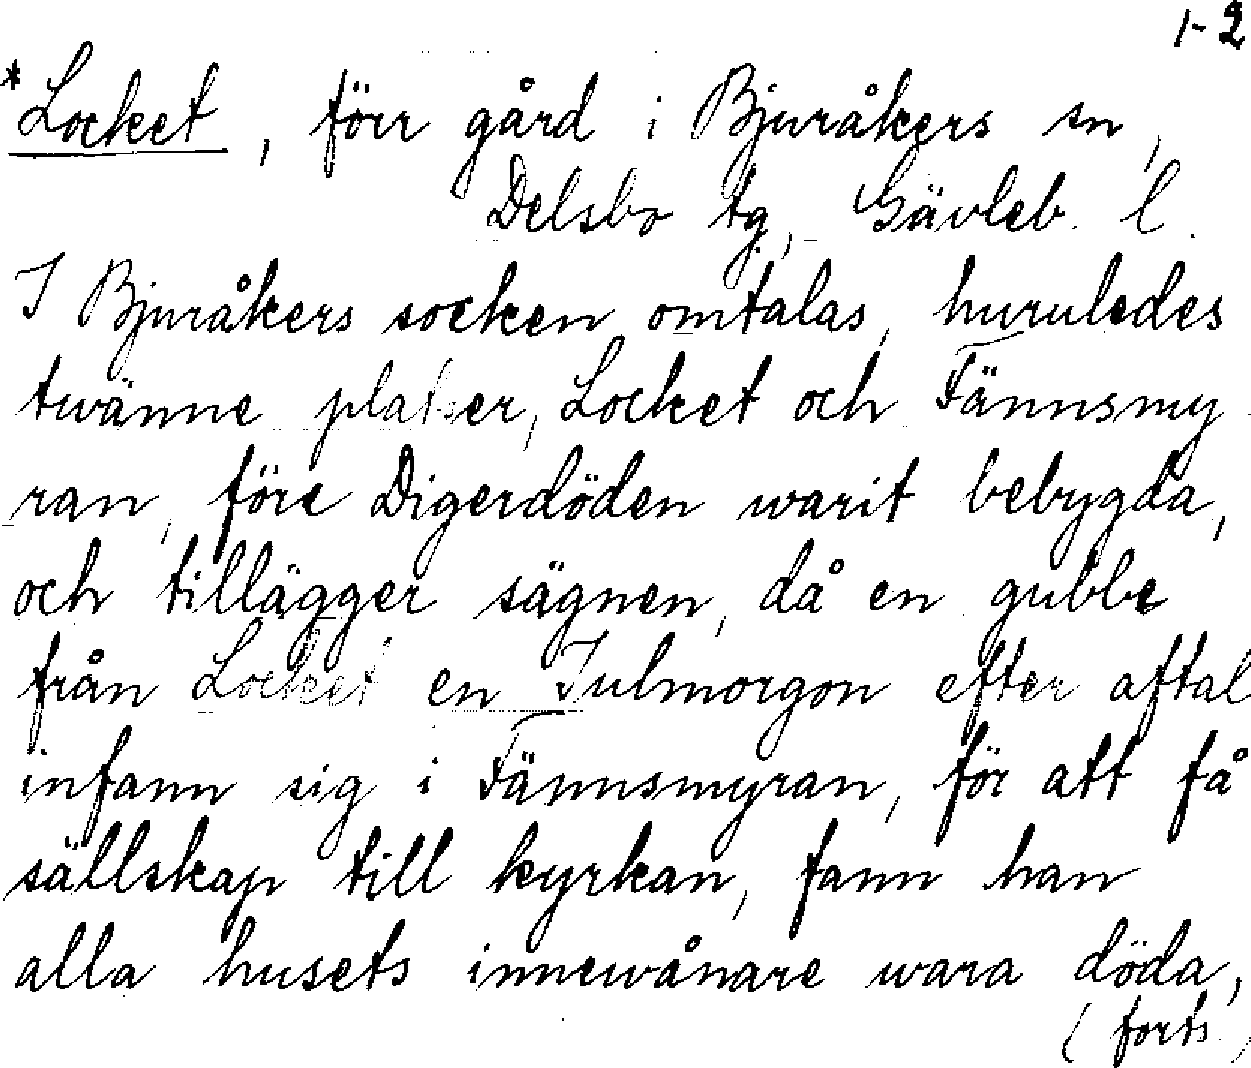 1-2
*Locket, förr gård i Bjuråkers sn,
Delsbo tg, Gävleb. l.
I Bjuråkers socken omtalas, huruledes
twänne platser, Locket och Fännsmy
ran, före Digerdöden warit bebygda,
och tillägger sägnen, då en gubbe
från Locket en Julmorgon efter aftal
infann sig i Fännsmyran, för att få
sällskap till kyrkan, fann han
alla husets innewånare wara döda,
(forts.)